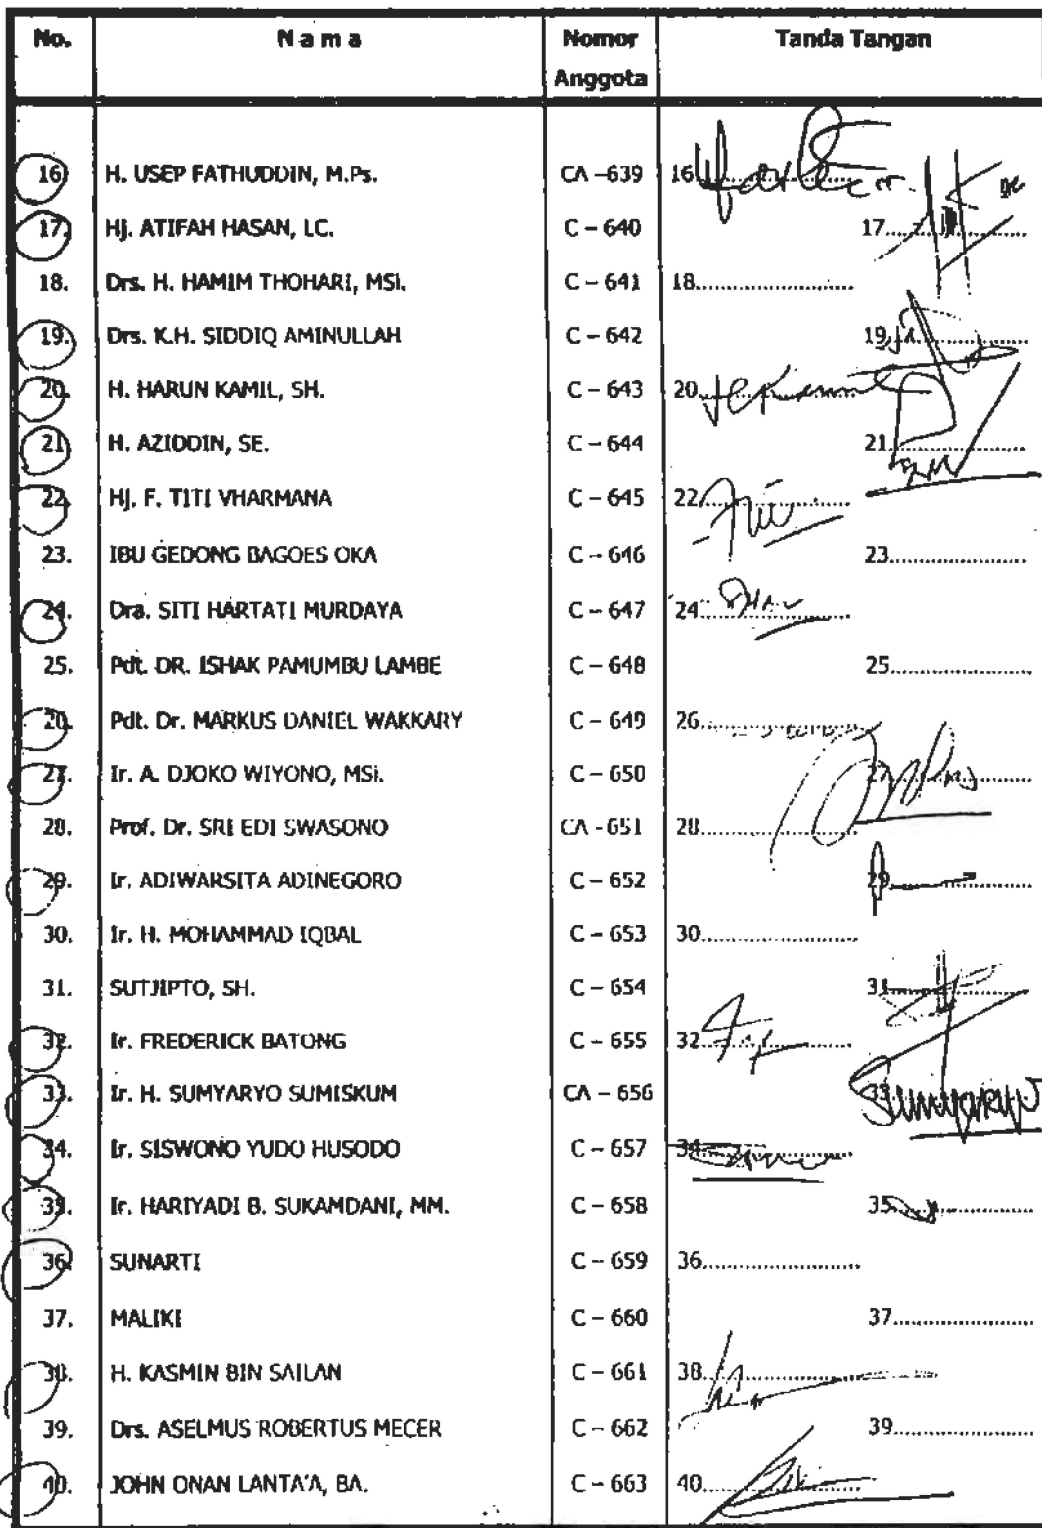 No. N a m a Nomor Anggota Tanda Tangan
16. H. USEP FATHUDDIN, M.Ps. CA –639 16
17. Hj. ATIFAH HASAN, LC. C – 640 17
18. Drs. H. HAMIM THOHARI, MSi. C – 641 18
19. Drs. K.H. SIDDIQ AMINULLAH C – 642 19
20. H. HARUN KAMIL, SH. C – 643 20
21. H. AZIDDIN, SE. C – 644 21
22. Hj. F. TITI VHARMANA C – 645 22
23. IBU GEDONG BAGOES OKA C – 646 23
24. Dra. SITI HARTATI MURDAYA C – 647 24
25. Pdt. DR. ISHAK PAMUMBU LAMBE C – 648 25
26. Pdt. Dr. MARKUS DANIEL WAKKARY C – 649 26
27. Ir. A. DJOKO WIYONO, MSi. C – 650 27
28. Prof. Dr. SRI EDI SWASONO CA - 651 28
29. Ir. ADIWARSITA ADINEGORO C – 652 29
30. Ir. H. MOHAMMAD IQBAL C – 653 30
31. SUTJIPTO, SH. C – 654 31
32. Ir. FREDERICK BATONG C – 655 32
33. Ir. H. SUMYARYO SUMISKUM CA – 656 33
34. Ir. SISWONO YUDO HUSODO C – 657 34
35. Ir. HARIYADI B. SUKAMDANI, MM. C – 658 35
36. SUNARTI C – 659 36
37. MALIKI C – 660 37
38. H. KASMIN BIN SAILAN C – 661 38
39. Drs. ASELMUS ROBERTUS MECER C – 662 39
40. JOHN ONAN LANTA'A, BA. C – 663 40